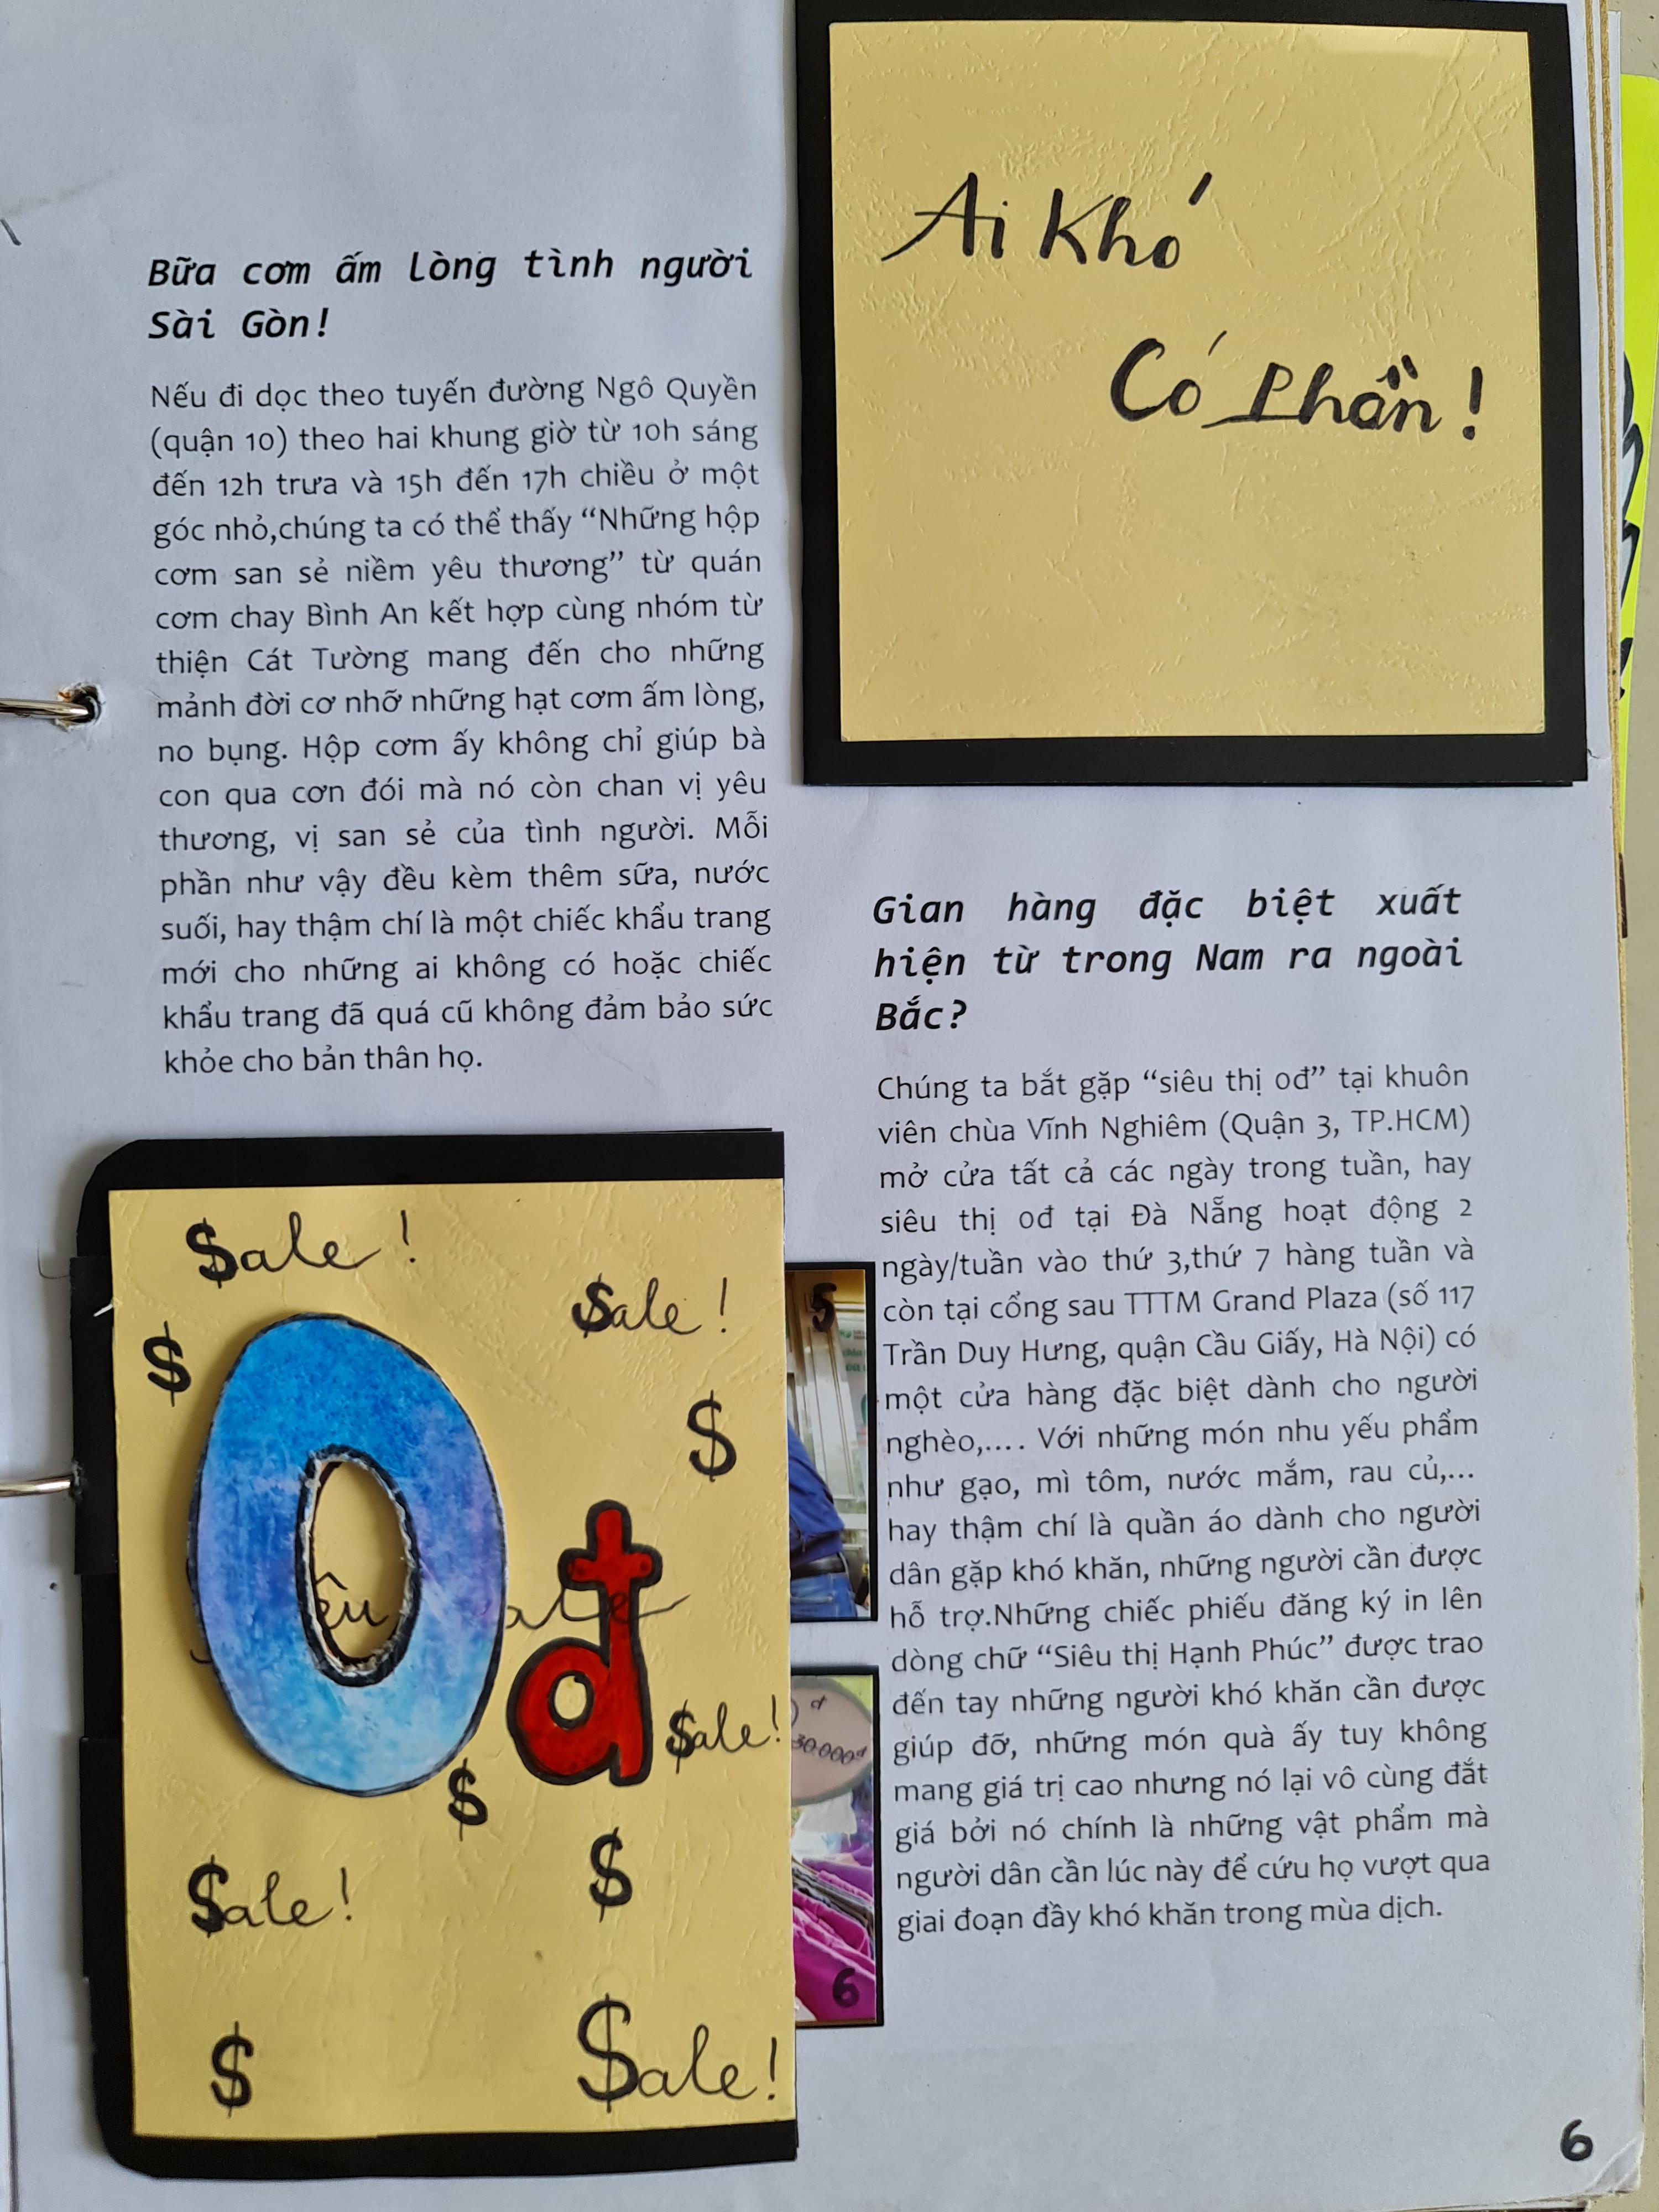 Bữa cơm ấm lòng tình người
Sài Gòn!
Nếu đi dọc theo tuyến đường Ngô Quyền
(quận 10) theo hai khung giờ từ 10h sáng
đến 12h trưa và 15h đến 17h chiều ở một
góc nhỏ,chúng ta có thể thấy “Những hộp
cơm san sẻ niềm yêu thương” từ quán
cơm chay Bình An kết hợp cùng nhóm từ
thiện Cát Tường mang đến cho những
mảnh đời cơ nhỡ những hạt cơm ấm lòng,
no bụng. Hộp cơm ấy không chỉ giúp bà
con qua cơn đói mà nó còn chan vị yêu
thương, vị san sẻ của tình người. Mỗi
phần như vậy đều kèm thêm sữa, nước
suối, hay thậm chí là một chiếc khẩu trang
mới cho những ai không có hoặc chiếc
khẩu trang đã quá cũ không đảm bảo sức
khỏe cho bản thân họ.
Ai Khó
Có Phần!
$ale!
$ale!
$
$
0đ
$ale!
$
$
$ale!
$
$ale!
5
30.000đ
6
Gian hàng đặc biệt xuất
hiện từ trong Nam ra ngoài
Bắc?
Chúng ta bắt gặp “siêu thị 0đ” tại khuôn
viên chùa Vĩnh Nghiêm (Quận 3, TP.HCM)
mở cửa tất cả các ngày trong tuần, hay
siêu thị 0đ tại Đà Nẵng hoạt động 2
ngày/tuần vào thứ 3,thứ 7 hàng tuần và
còn tại cổng sau TTTM Grand Plaza (số 117
Trần Duy Hưng, quận Cầu Giấy, Hà Nội) có
một cửa hàng đặc biệt dành cho người
nghèo,.... Với những món nhu yếu phẩm
như gạo, mì tôm, nước mắm, rau củ,...
hay thậm chí là quần áo dành cho người
dân gặp khó khăn, những người cần được
hỗ trợ.Những chiếc phiếu đăng ký in lên
dòng chữ “Siêu thị Hạnh Phúc” được trao
đến tay những người khó khăn cần được
giúp đỡ, những món quà ấy tuy không
mang giá trị cao nhưng nó lại vô cùng đắt
giá bởi nó chính là những vật phẩm mà
người dân cần lúc này để cứu họ vượt qua
giai đoạn đầy khó khăn trong mùa dịch.
6